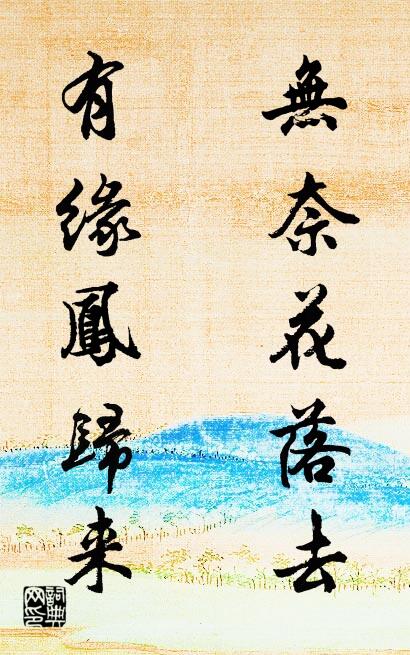 無奈花落去
有緣鳳歸来
詞典
网